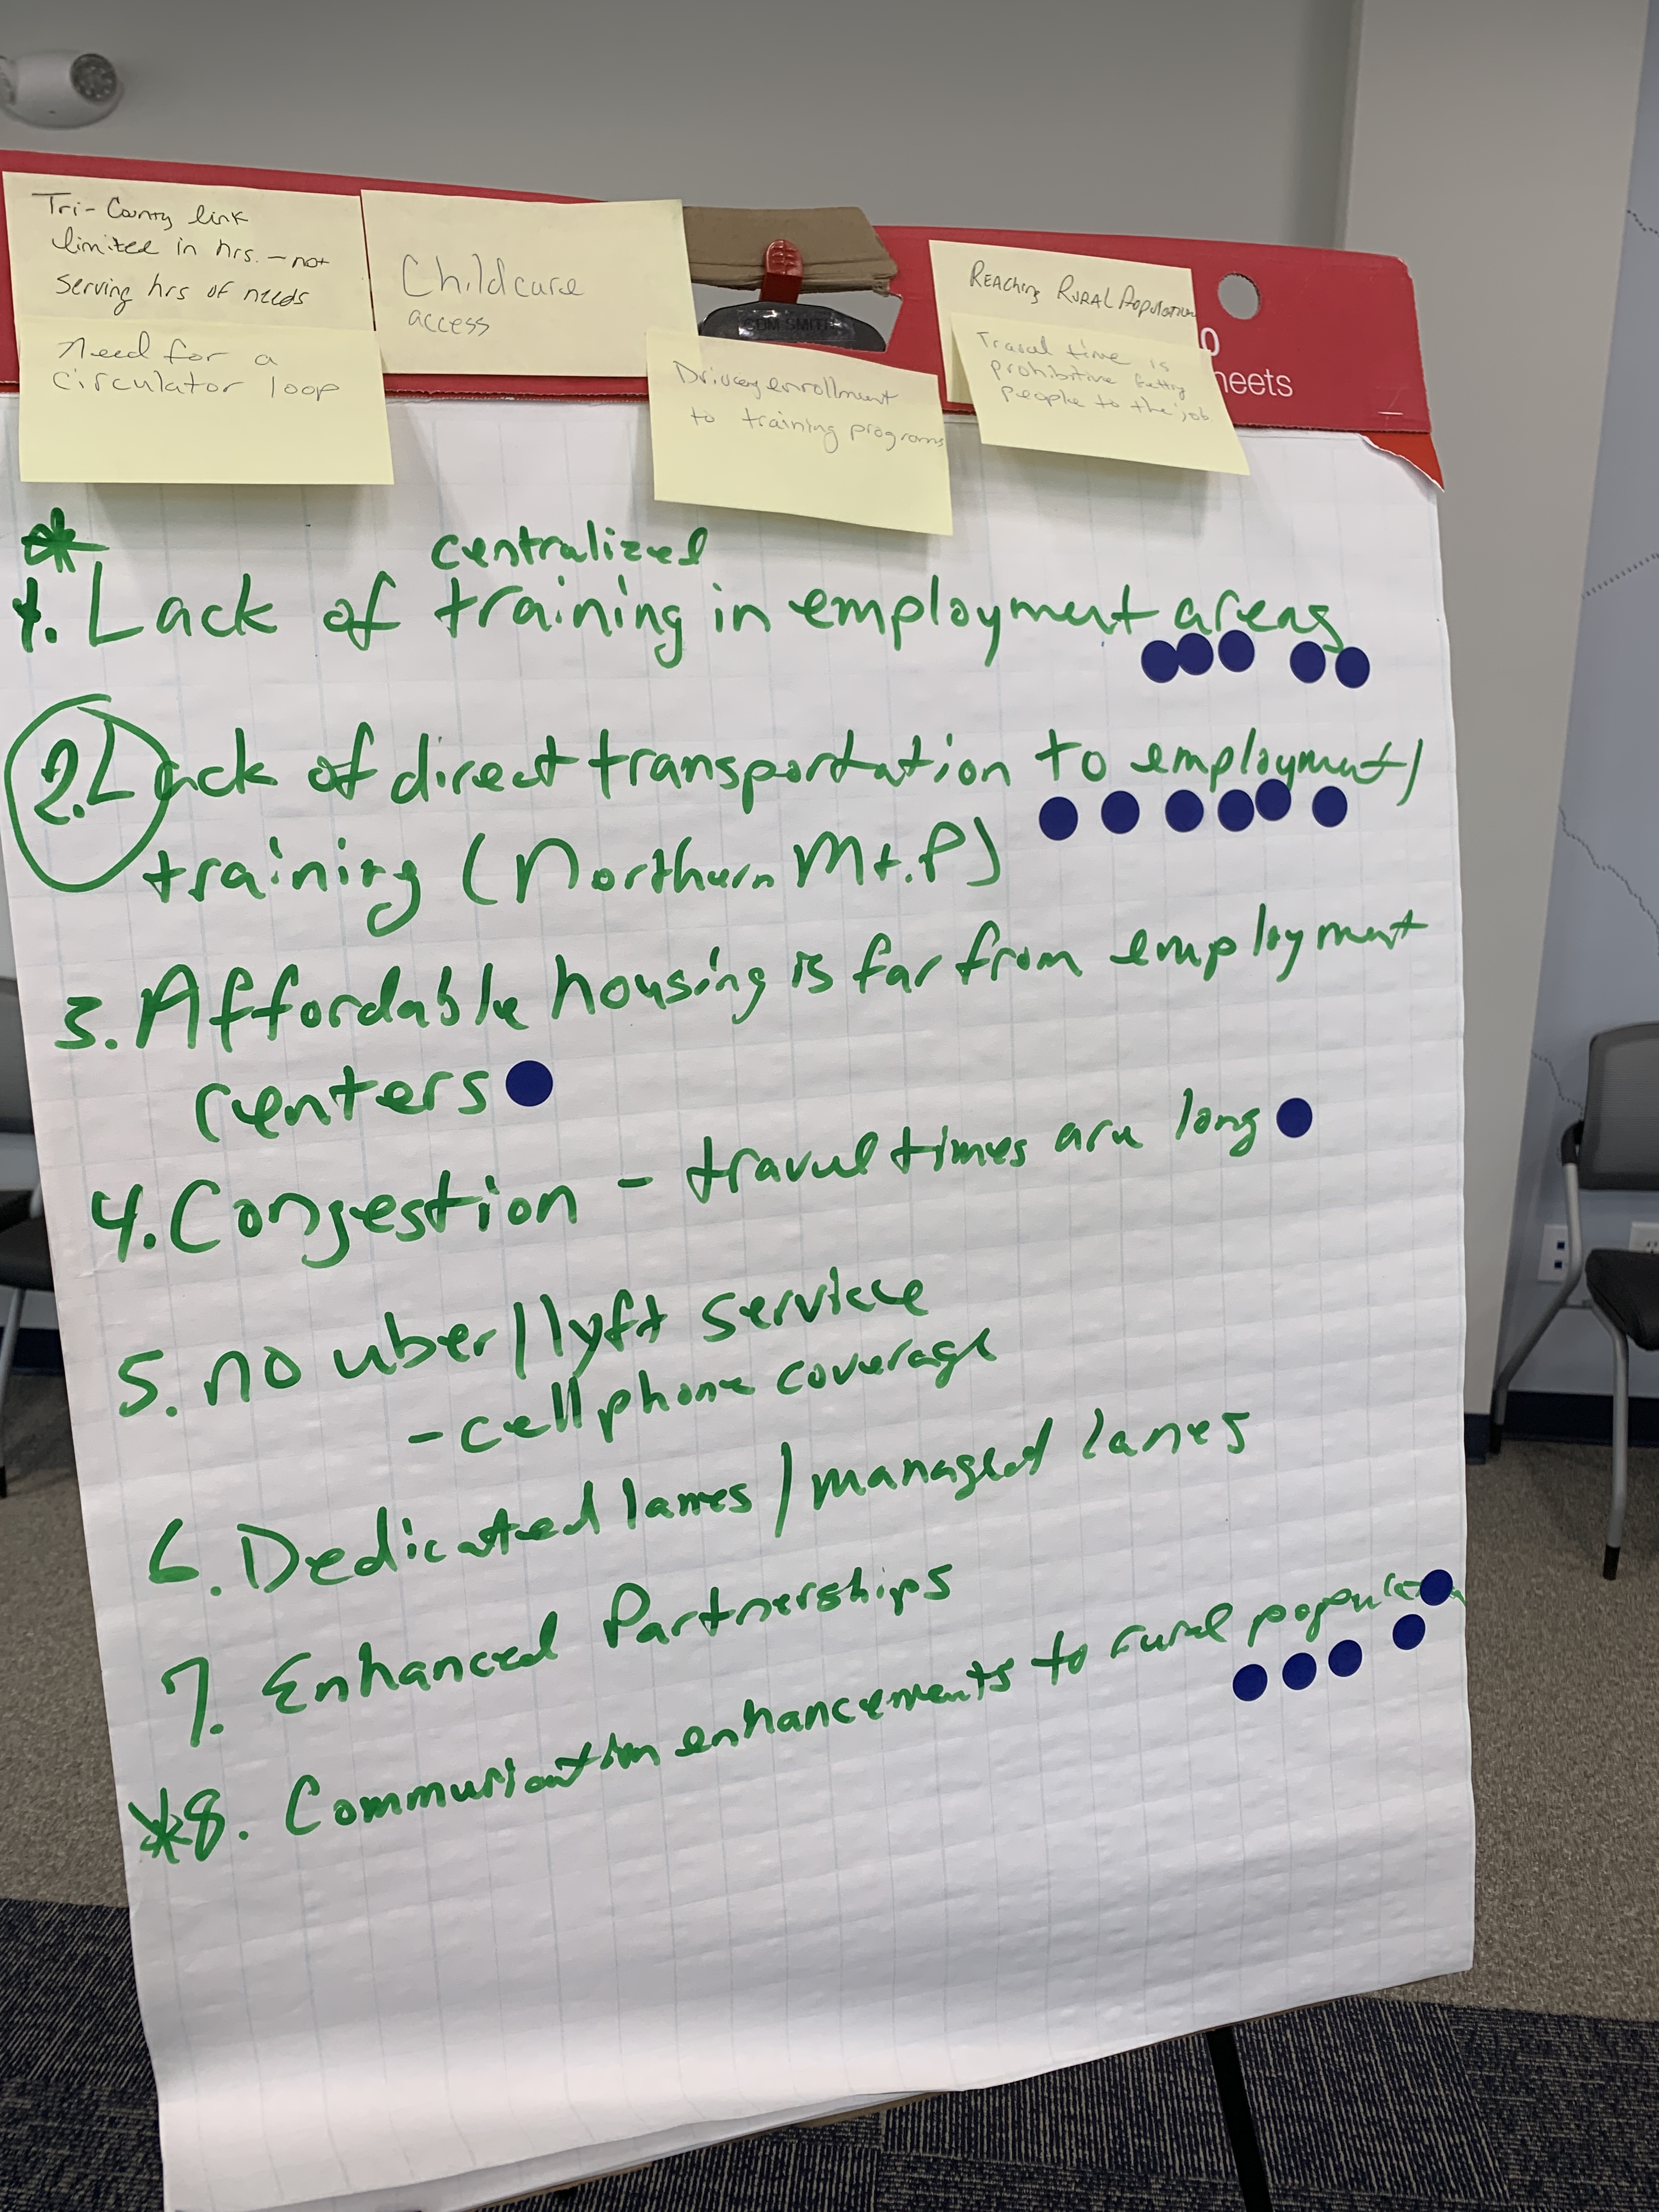 Tri-County link
limited in hrs. - not
serving hrs of needs
Need for a
circulator loop
Childcare
access
CDM SMITH
Driving enrollment
to training programs
REACHING RURAL POPULATION
Travel time is
prohibitive getting
people to the job
heets
*
centralized
1. Lack of training in employment areas
2. Lack of direct transportation to employment/
training (Northern Mt. P)
3. Affordable housing is far from employment
centers
4. Congestion - travel times are long
5. no uber/lyft service
- cell phone coverage
6. Dedicated lanes / managed lanes
7. Enhanced Partnerships
*8. Communication enhancements to rural population